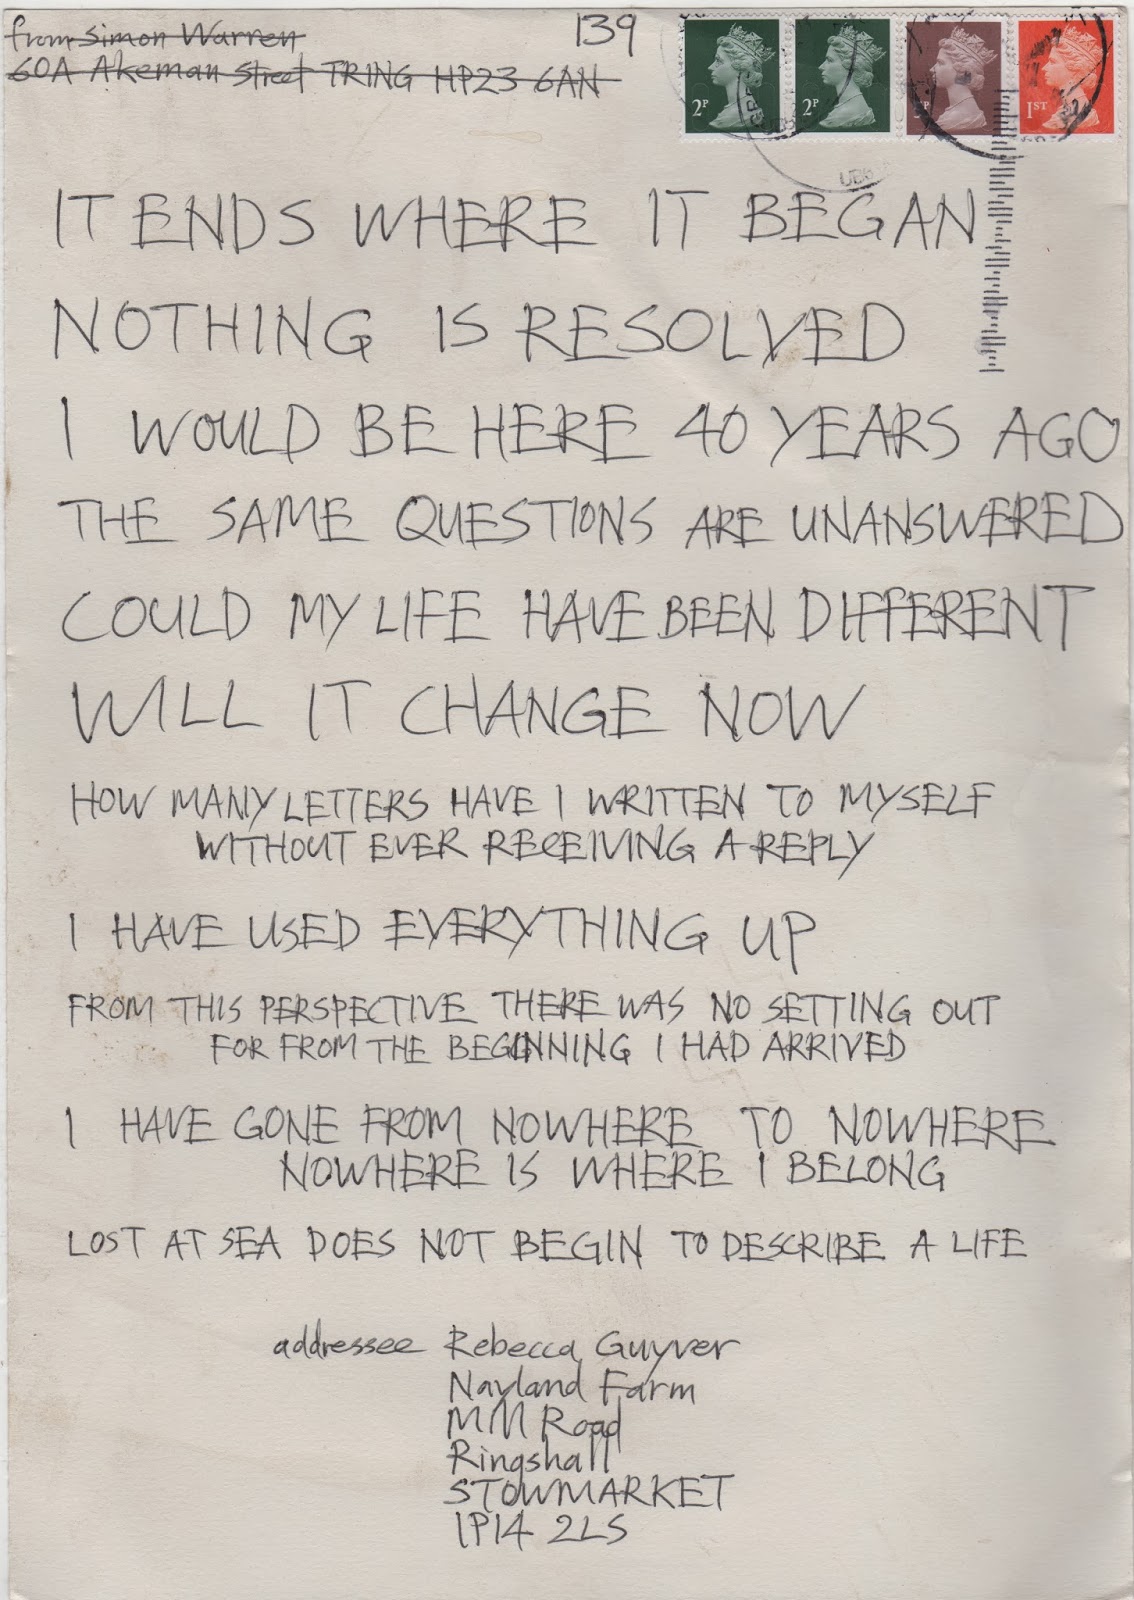 from Simon Warren
60A Akeman Street TRING HP23 6AN
139
2P
2P
P
1ST
IT ENDS WHERE IT BEGAN
NOTHING IS RESOLVED
I WOULD BE HERE 40 YEARS AGO
THE SAME QUESTIONS ARE UNANSWERED
COULD MY LIFE HAVE BEEN DIFFERENT
WILL IT CHANGE NOW
HOW MANY LETTERS HAVE I WRITTEN TO MYSELF
WITHOUT EVER RECEIVING A REPLY
I HAVE USED EVERYTHING UP
FROM THIS PERSPECTIVE THERE WAS NO SETTING OUT
FOR FROM THE BEGINNING I HAD ARRIVED
I HAVE GONE FROM NOWHERE TO NOWHERE
NOWHERE IS WHERE I BELONG
LOST AT SEA DOES NOT BEGIN TO DESCRIBE A LIFE
addressee Rebecca Guyver
Nayland Farm
Mill Road
Ringshall
STOWMARKET
IP14 2LS